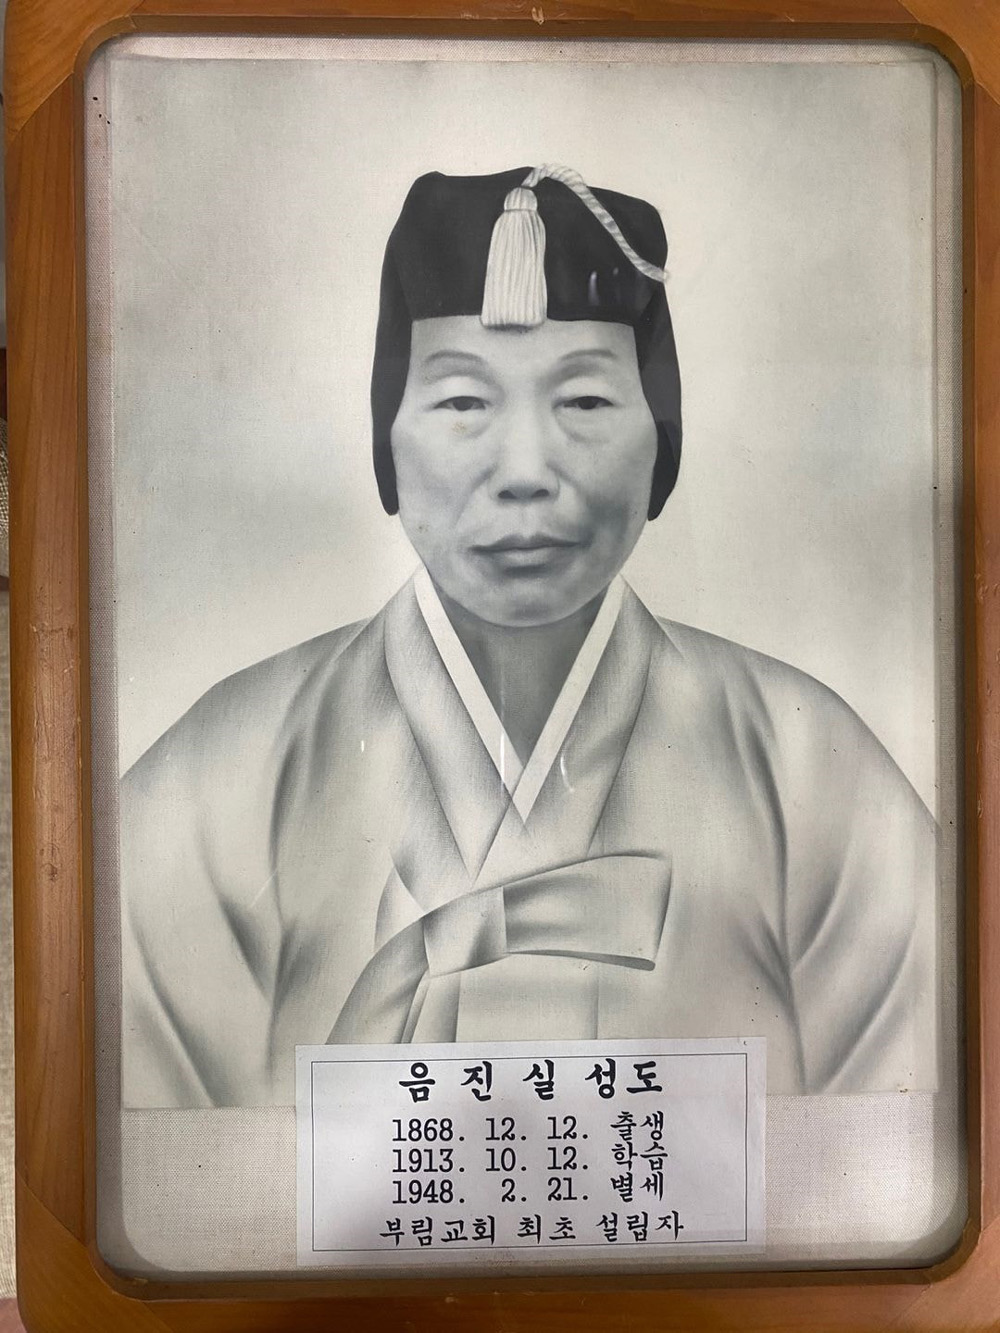 음 진 실 성도
1868. 12. 12. 출생
1913. 10. 12. 학습
1948. 2. 21. 별세
부림교회 최초 설립자